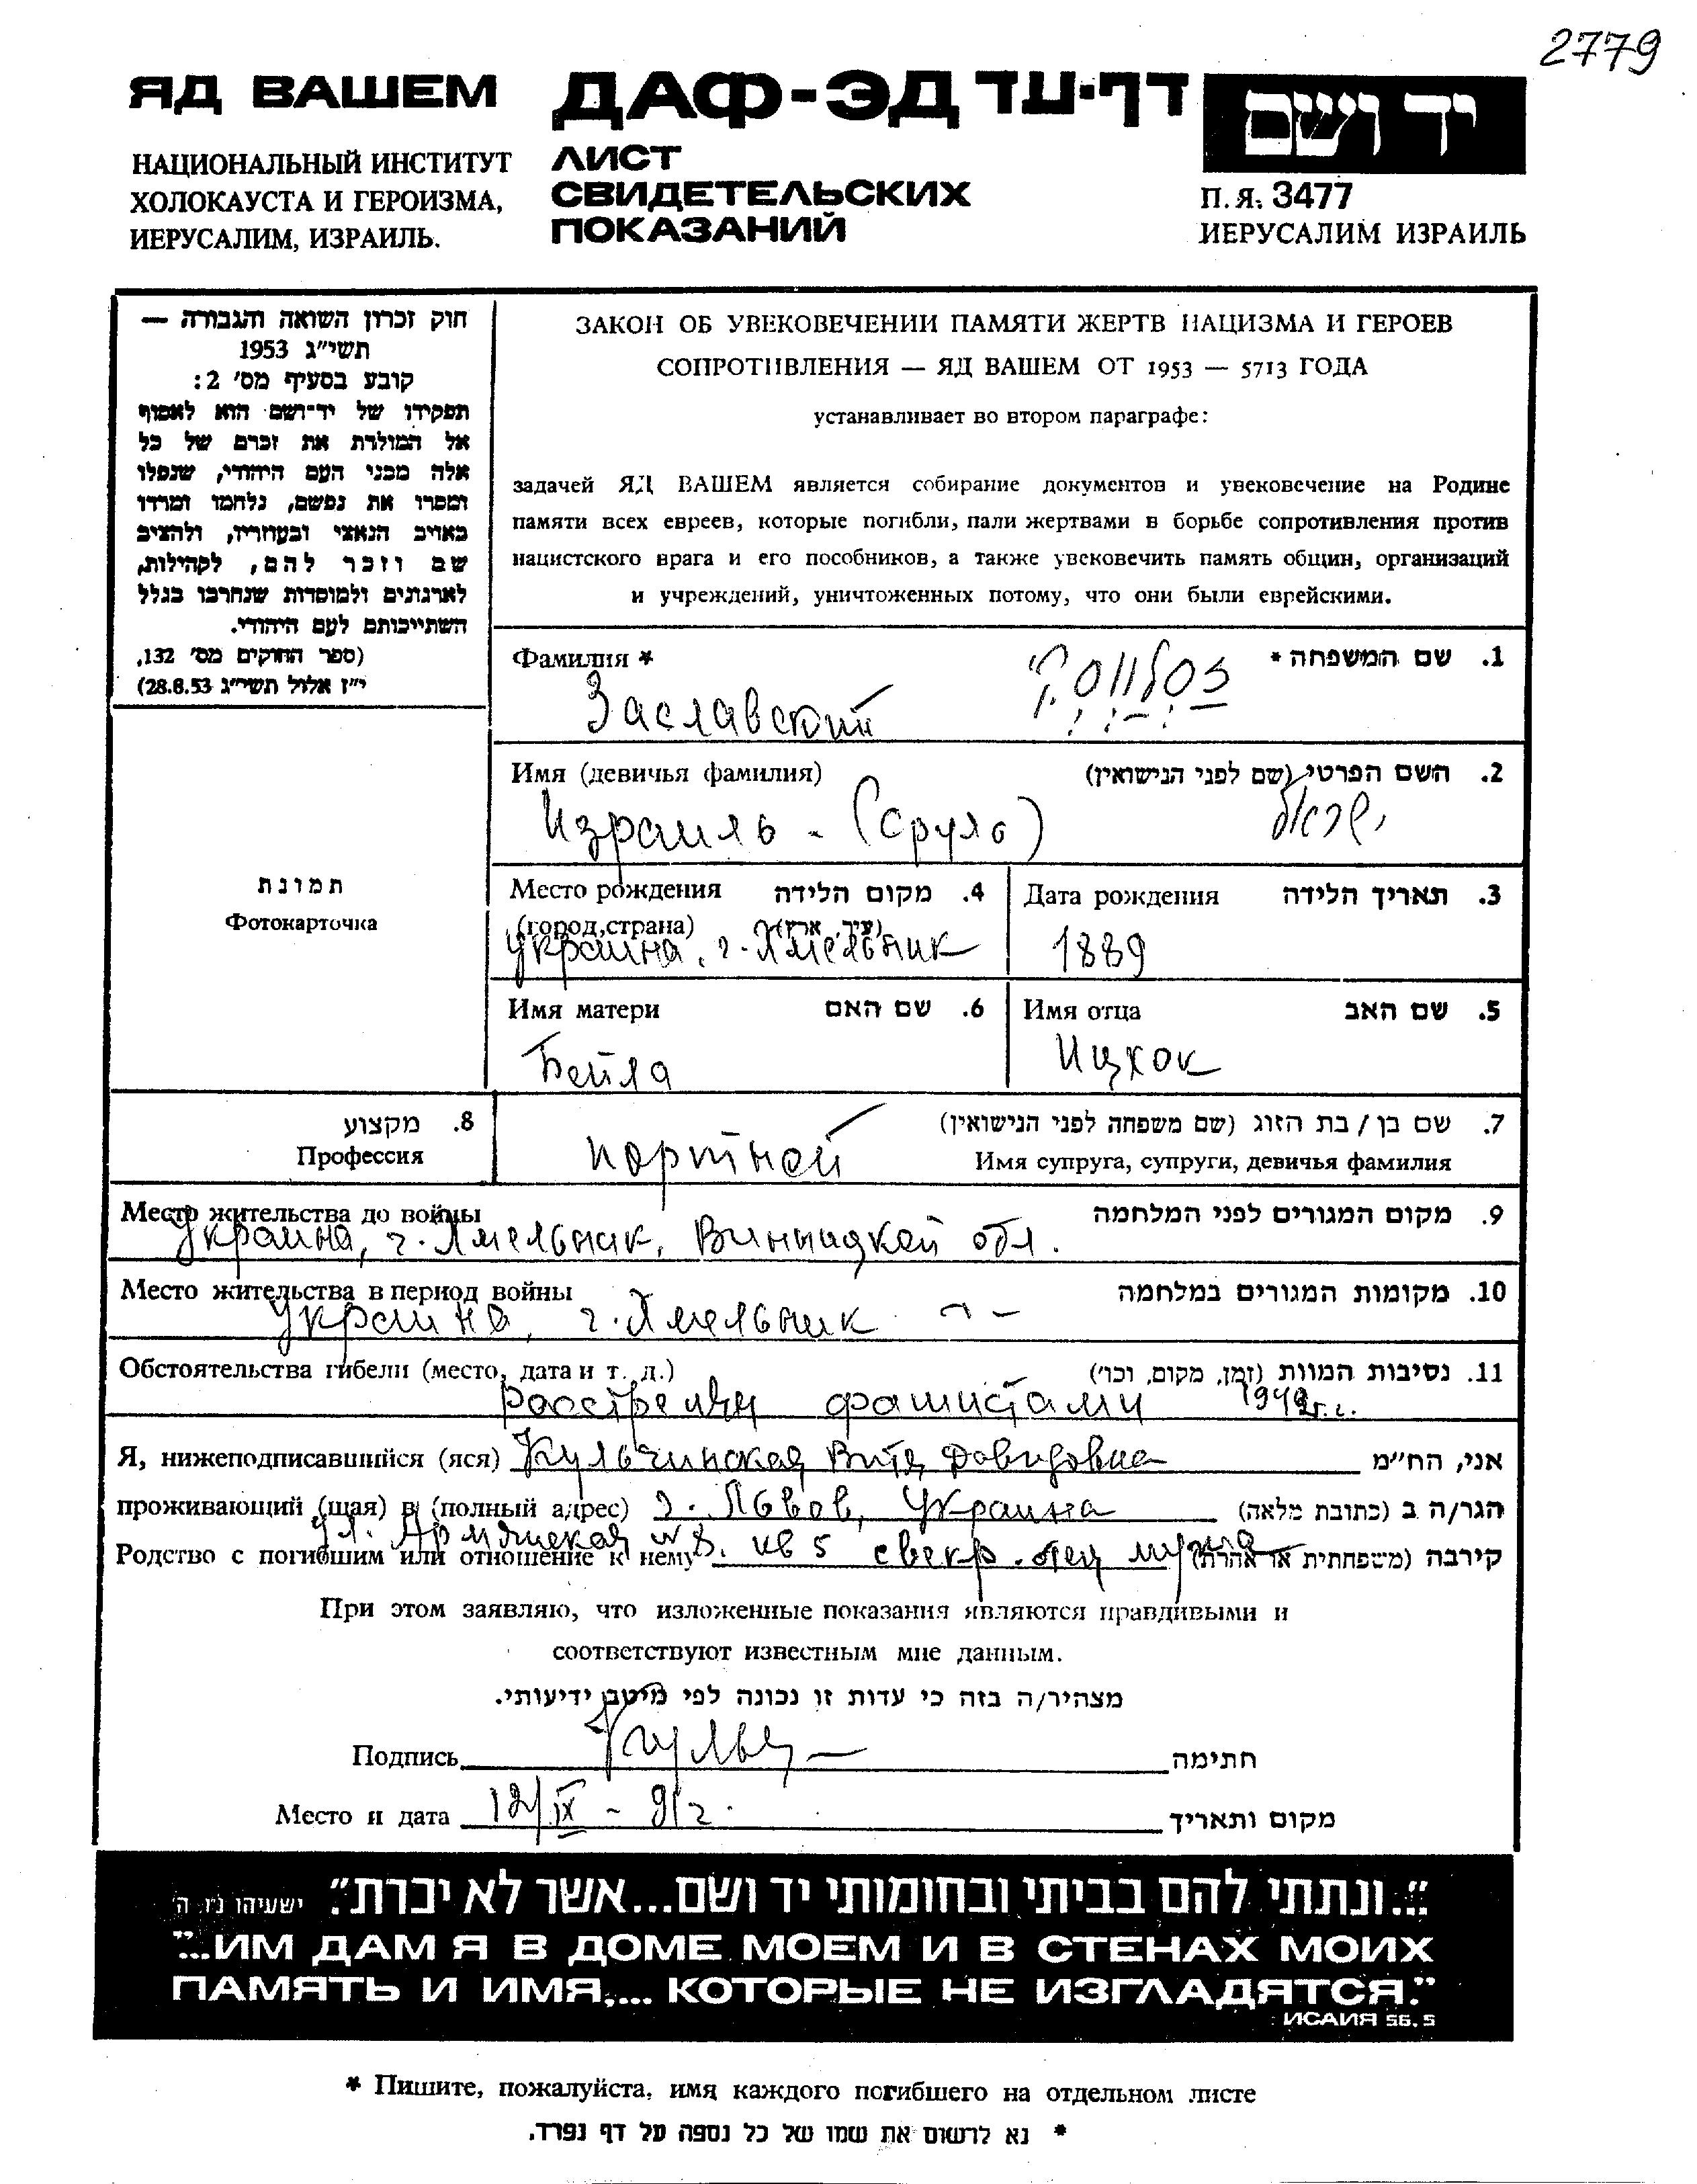 2779
ЯД ВАШЕМ
НАЦИОНАЛЬНЫЙ ИНСТИТУТ
ХОЛОКАУСТА И ГЕРОИЗМА,
ИЕРУСАЛИМ, ИЗРАИЛЬ.
ДАФ-ЭД דף-עד
ЛИСТ
СВИДЕТЕЛЬСКИХ
ПОКАЗАНИЙ
יד ושם
П.Я. 3477
ИЕРУСАЛИМ ИЗРАИЛЬ
חוק זכרון השואה והגבורה —
תשי״ג 1953
קובע בסעיף מס׳ 2:
תפקידו של יד־ושם הוא לאסוף
אל המולדת את זכרם של כל
אלה מבני העם היהודי, שנפלו
ומסרו את נפשם, נלחמו ומרדו
באויב הנאצי ובעוזריו, ולהציב
שם וזכר להם, לקהילות,
לארגונים ולמוסדות שנחרבו בגלל
השתייכותם לעם היהודי.
(ספר החוקים מס׳ 132,
י״ז אלול תשי״ג 28.8.53)
ЗАКОН ОБ УВЕКОВЕЧЕНИИ ПАМЯТИ ЖЕРТВ НАЦИЗМА И ГЕРОЕВ
СОПРОТИВЛЕНИЯ — ЯД ВАШЕМ ОТ 1953 — 5713 ГОДА
устанавливает во втором параграфе:
задачей ЯД ВАШЕМ является собирание документов и увековечение на Родине
памяти всех евреев, которые погибли, пали жертвами в борьбе сопротивления против
нацистского врага и его пособников, а также увековечить память общин, организаций
и учреждений, уничтоженных потому, что они были еврейскими.
Фамилия * 1. שם המשפחה *
Заславский
Имя (девичья фамилия) 2. השם הפרטי (שם לפני הנישואין)
Израиль - (Сруль) ישראל
תמונת
Фотокарточка
Место рождения 4. מקום הלידה
(город, страна) (עיר, ארץ)
Украина, г. Хмельник
Дата рождения 3. תאריך הלידה
1889
Имя матери 6. שם האם
Бейла
Имя отца 5. שם האב
Ицхок
8. מקצוע
Профессия
портной
7. שם בן / בת הזוג (שם משפחה לפני הנישואין)
Имя супруга, супруги, девичья фамилия
Место жительства до войны 9. מקום המגורים לפני המלחמה
Украина, г. Хмельник, Винницкой обл.
Место жительства в период войны 10. מקומות המגורים במלחמה
Украина, г. Хмельник - " -
Обстоятельства гибели (место, дата и т. д.) 11. נסיבות המוות (זמן, מקום, וכו׳)
расстрелян фашистами 1942 г.
Я, нижеподписавшийся (яся) Кульчинская Витя Давидовна אני, הח״מ
проживающий (щая) в (полный адрес) г. Львов, Украина הגר/ה ב (כתובת מלאה)
ул. Армянская №8. кв 5
Родство с погибшим или отношение к нему свекр. отец мужа קירבה (משפחתית או אחרת)
При этом заявляю, что изложенные показания являются правдивыми и
соответствуют известным мне данным.
מצהיר/ה בזה כי עדות זו נכונה לפי מיטב ידיעותי.
Подпись חתימה
Место и дата 12/IX - 91 г. מקום ותאריך
״...ונתתי להם בביתי ובחומותי יד ושם...אשר לא יכרת״. ישעיהו נו ה
"...ИМ ДАМ Я В ДОМЕ МОЕМ И В СТЕНАХ МОИХ
ПАМЯТЬ И ИМЯ,... КОТОРЫЕ НЕ ИЗГЛАДЯТСЯ."
ИСАИЯ 56.5
* Пишите, пожалуйста, имя каждого погибшего на отдельном листе
* נא לרשום את שמו של כל נספה על דף נפרד.